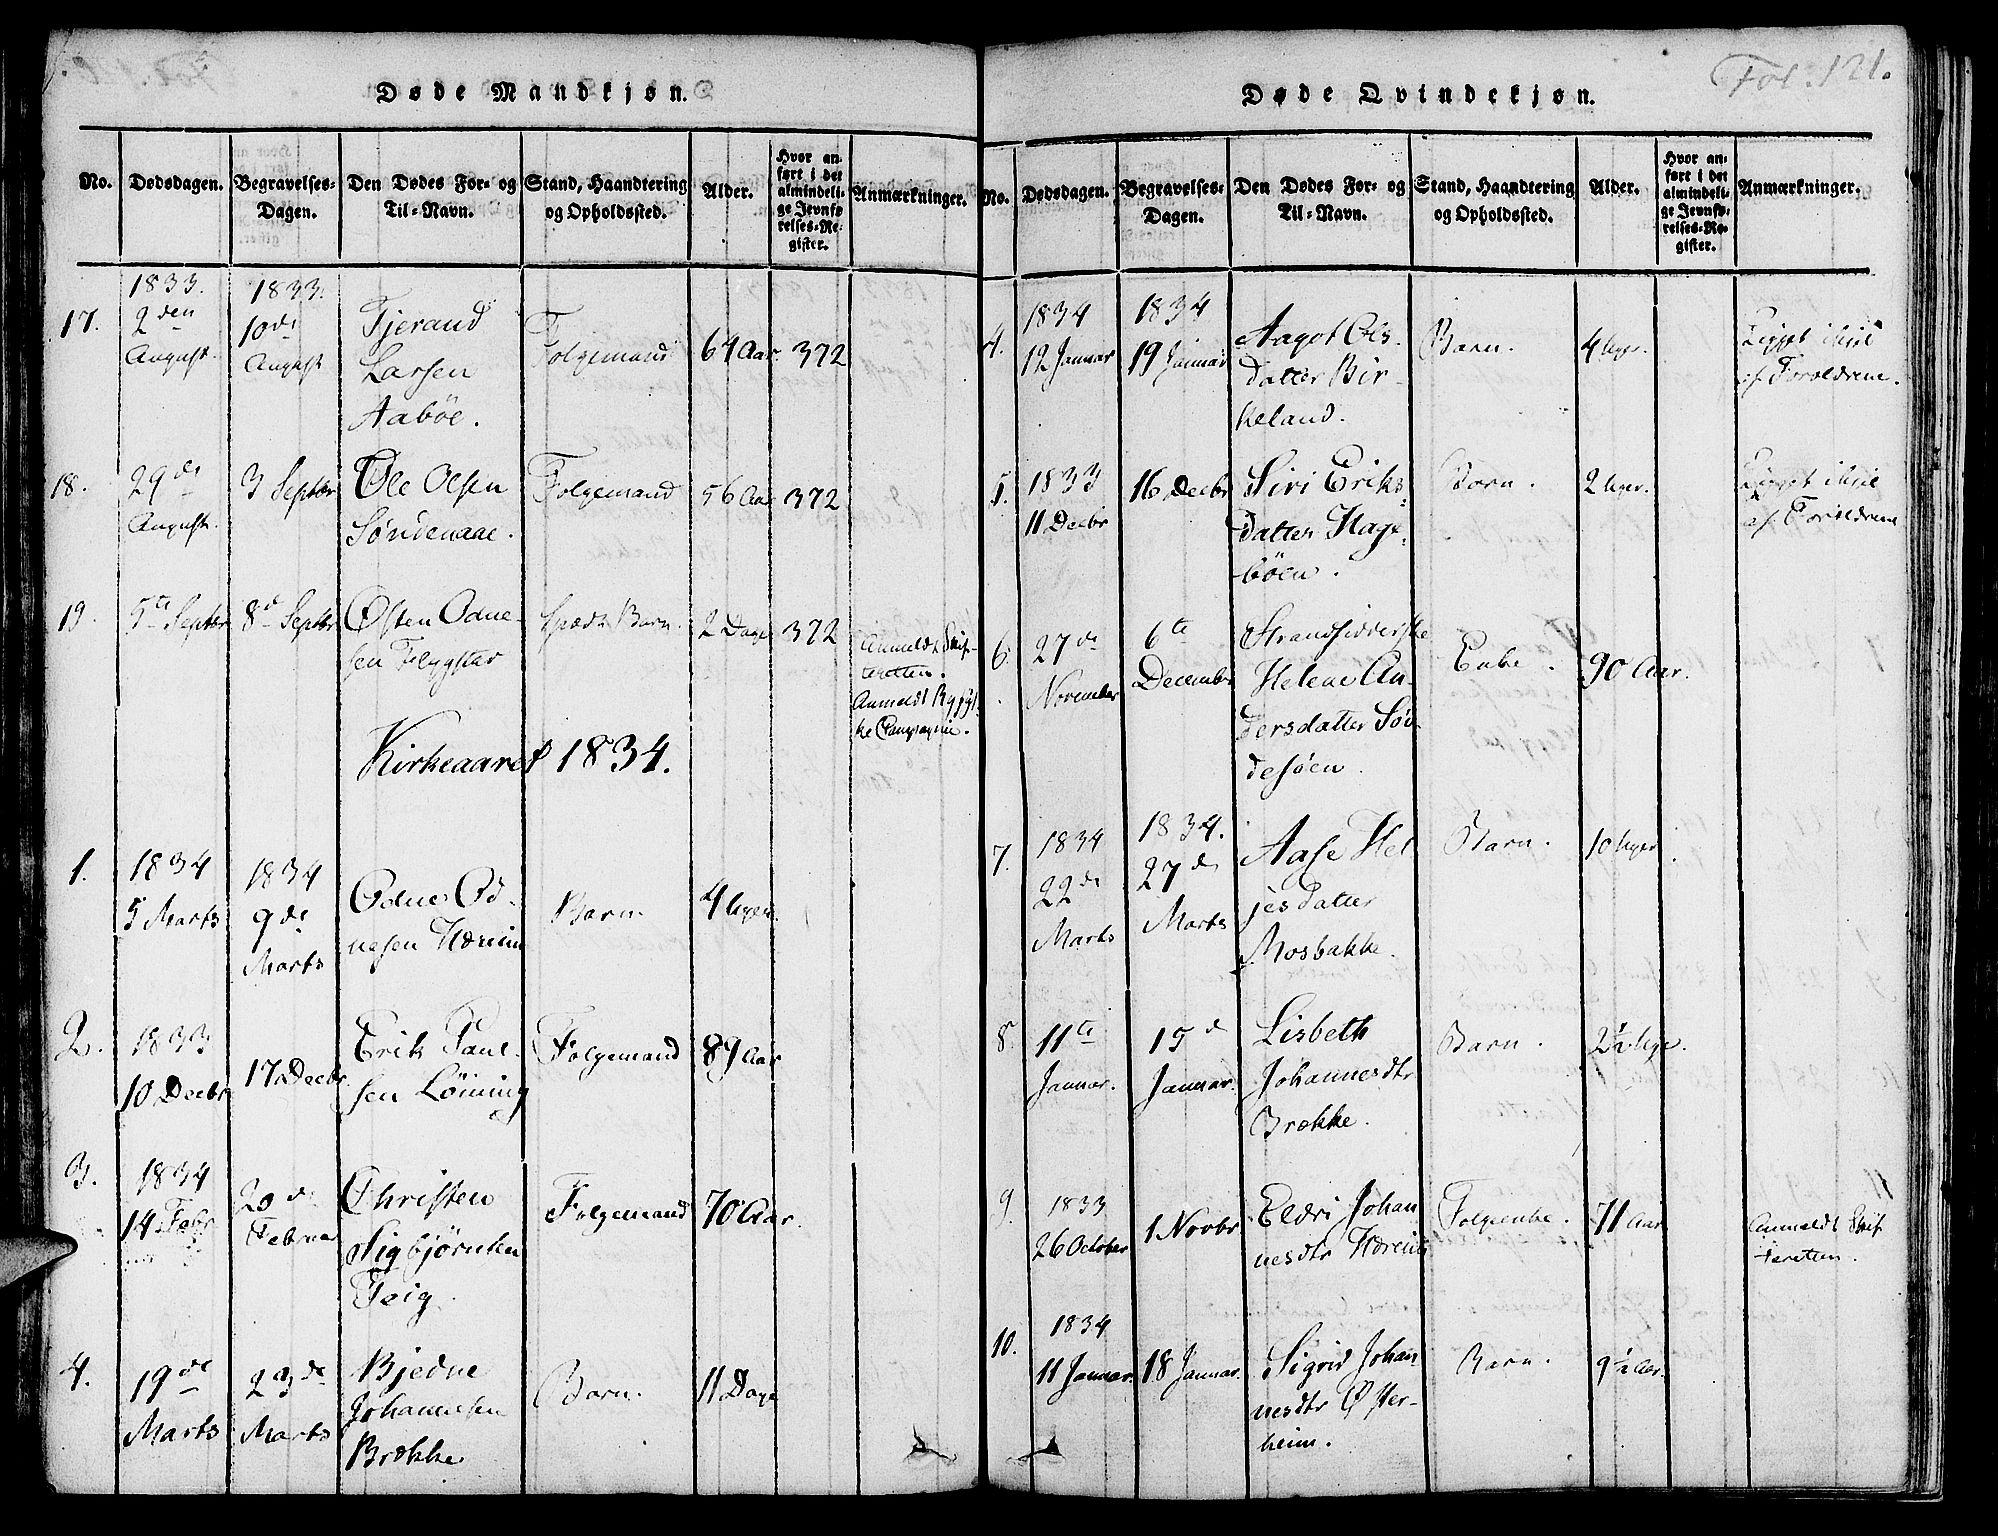 Døde Mandkjøn.
No. Dødsdagen. Begravelses-Dagen. Den Dødes For- og Til-Navn. Stand, Haandtering og Opholdssted. Alder. Hvor anført i det almindelige Jevnførelses-Register. Anmærkninger.
17. 1833. 2den August. 1833. 10de August Tjerand Larsen Aabøe. Folgemand 64 Aar. 372
18. 29de August. 3 Septbr Ole Olsen Søndenaae. Folgemand 56 Aar 372
19. 5te Septbr 8de Septbr Østen Odnesen Flygstar spædt Barn. 2 Dage 372 Anmeldt Skifteretten. Anmeldt Ryfylke Compagnie.
Kirkeaaret 1834.
1. 1834 5 Marts 1834 9de Marts Odne Odnesen Hæreim Barn. 4 Uger
2. 1833 10 Decbr 17 Decbr Erik Paulsen Løining Folgemand 89 Aar
3. 1834 14 Febr 20de Februar Christen Sigbjørnsen Teig. Folgemand 70 Aar.
4. 19de Marts 23de Marts Bjedne Johannesen Brække Barn. 11 Dage
Fol. 121.
Døde Qvindekjøn.
No. Dødsdagen. Begravelses-Dagen. Den Dødes For- og Til-Navn. Stand, Haandtering og Opholdssted. Alder. Hvor anført i det almindelige Jevnførelses-Register. Anmærkninger.
4. 1834 12 Januar 1834 19 Januar Aagot Olsdatter Birkeland. Barn. 4 Uger. Ligget ihjel af Forældrene.
5. 1833 11 Decbr 16 Decbr Siri Eriksdatter Hagebøen. Barn. 2 Uger. Ligget ihjel af Forældrene
6. 27de November 6te December Strandsidderske Helene Andersdatter Søndesøen. Enke. 90 Aar.
7. 1834 22de Marts 1834. 27de Marts Aase Heljesdatter Mosbakke. Barn. 10 Uger.
8. 11te Januar. 15d Januar. Lisbeth Johannesdtr Brække. Barn. 2½ Uge.
9. 1833 26 October 1 Novbr Eldri Johannesdtr Hæreim Folgeenke. 71 Aar Anmeldt Skifteretten.
10. 1834 11 Januar. 18 Januar. Sigrid Johannesdtr Østerheim. Barn. 9½ Aar.